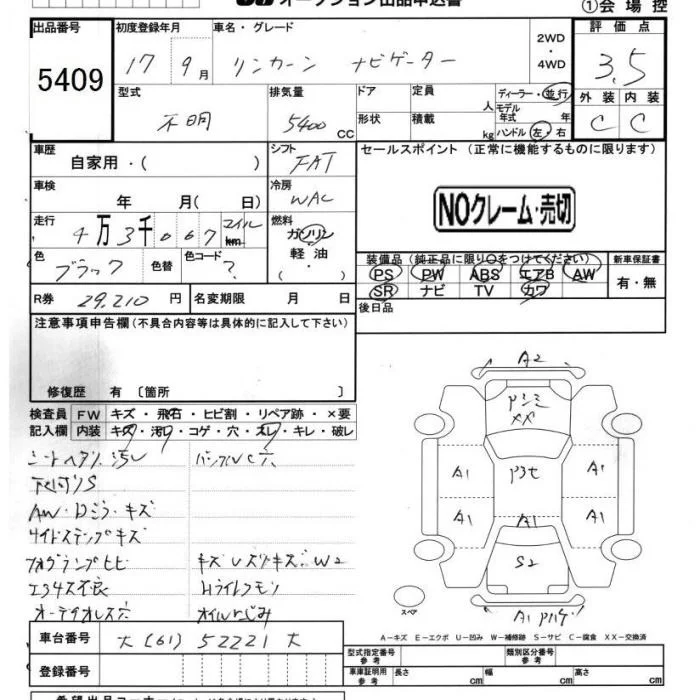 オークション出品申込書
①会場控
出品番号 5409
初度登録年月 17 9月
車名・グレード リンカーン ナビゲーター
2WD ・ 4WD
評価点 3.5
外装 C 内装 C
型式 不明
排気量 5400 CC
ドア
形状
定員 人
積載 kg
ディーラー・並行
モデル年式 年
ハンドル 左・右
車歴 自家用・( )
シフト FAT
セールスポイント (正常に機能するものに限ります)
NOクレーム・売切
車検 年 月( 日)
冷房 WAC
走行 4万3千067 マイル km
燃料 ガソリン 軽油 ( ・ )
色 ブラック 色替
色コード ?
装備品 (純正品に限り○をつけてください)
PS PW ABS エアB AW
SR ナビ TV カワ
新車保証書 有・無
R券 29,210 円
名変期限 月 日
後日品
注意事項申告欄 (不具合内容等は具体的に記入して下さい)
修復歴 有 〔箇所 〕
検査員記入欄
FW キズ・飛石・ヒビ割・リペア跡・×要
内装 キズ・汚れ・コゲ・穴・スレ・キレ・破レ
シートヘタリ汚レ
下回りS
AW・Dミラーキズ
サイドステップキズ
フォグランプヒビ
エアサス不良
W2
オイルにじみ
A2
XX
A1
A1
A1
A1
A1
S2
A1
スペア
A-キズ E-エクボ U-凹み W-補修跡 S-サビ C-腐食 XX-交換済
車台番号 大(61)52221大
登録番号
型式指定番号 参考
類別区分番号 参考
車庫証明用 参考 長さ cm 幅 cm 高さ cm